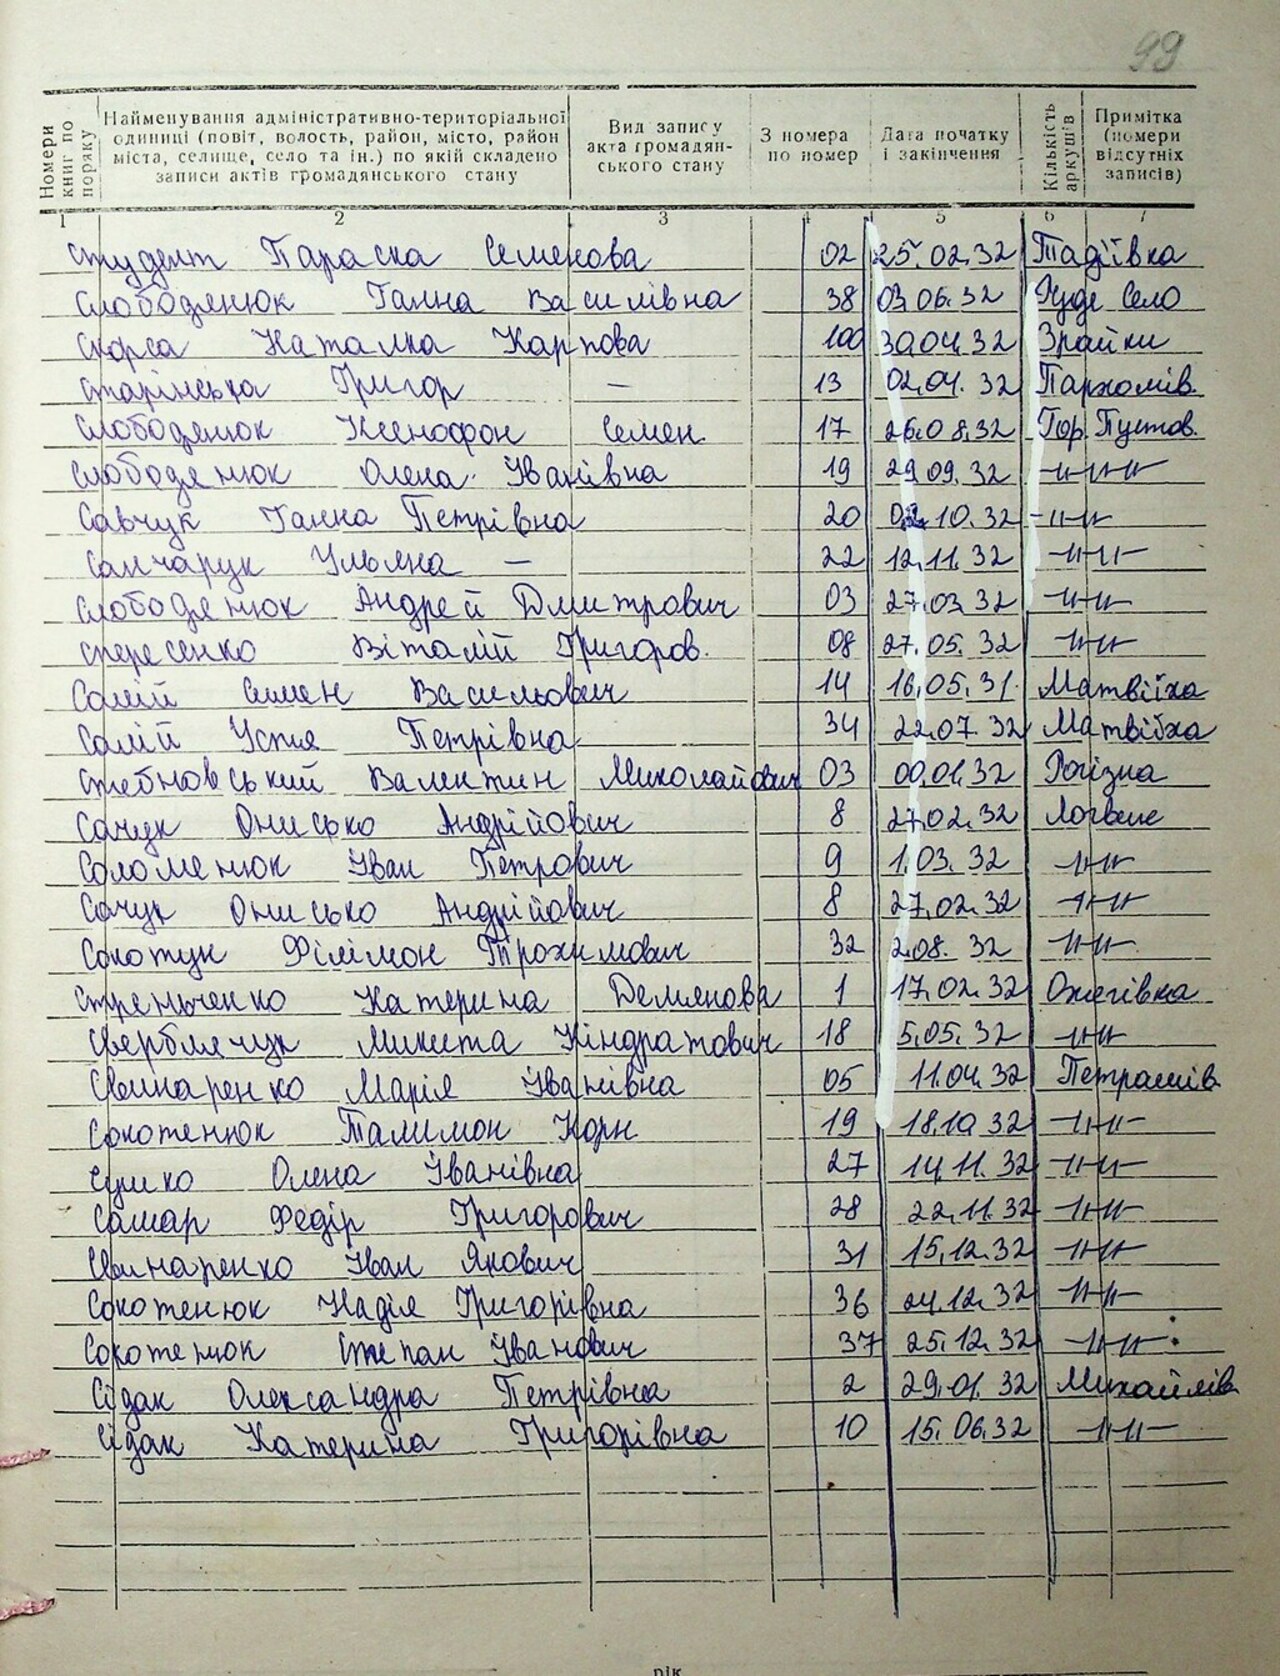 99
Номери книг по поряку
Найменування адміністративно-територіальної одиниці (повіт, волость, район, місто, район міста, селище, село та ін.) по якій складено записи актів громадянського стану
Вид запису акта громадян-ського стану
З номера по номер
Дата початку і закінчення
Кількість аркушів
Примітка (номери відсутніх записів)
1 2 3 4 5 6 7
Студент Параска Семенова 02 25.02.32 Тадіївка
Слободянюк Ганна Василівна 38 03.06.32 Руде Село
Скорса Наталка Карпова 100 30.04.32 Зрайки
Старінська Григор — 13 02.04.32 Пархомів.
Слободенюк Ксенофон Семен. 17 26.08.32 Гор. Пустов.
Слободенюк Олена Іванівна 19 29.09.32 -//-//-
Савчук Ганна Петрівна 20 02.10.32 -//-//-
Санчарук Ульяна — 22 12.11.32 -//-//-
Слободенюк Андрей Дмитрович 03 27.03.32 -//-//-
Спересенко Віталій Григоров. 08 27.05.32 -//-//-
Салій Семен Васильович 14 16.05.31 Матвіїха
Салій Устя Петрівна 34 22.07.32 Матвіїха
Стебновський Валентин Миколайович 03 00.01.32 Рогізна
Сачук Онисько Андрійович 8 27.02.32 Логвине
Соломенюк Іван Петрович 9 1.03.32 -//-//-
Сачук Онисько Андрійович 8 27.02.32 -//-//-
Сокотун Філімон Трохимович 32 2.08.32 -//-//-
Стрельченко Катерина Демянова 1 17.02.32 Ожегівка
Свербличук Микита Кіндратович 18 5.05.32 -//-//-
Свинаренко Марія Іванівна 05 11.04.32 Петрашів
Сокотенюк Талимон Корн 19 18.10.32 -//-//-
Сушко Олена Іванівна 27 14.11.32 -//-//-
Самар Федір Григорович 28 22.11.32 -//-//-
Свинаренко Іван Якович 31 15.12.32 -//-//-
Сокотенюк Надія Григорівна 36 24.12.32 -//-//-
Сокотенюк Степан Іванович 37 25.12.32 -//-//-
Сідак Олександра Петрівна 2 29.01.32 Михайлів
Сідак Катерина Григорівна 10 15.06.32 -//-//-
рік